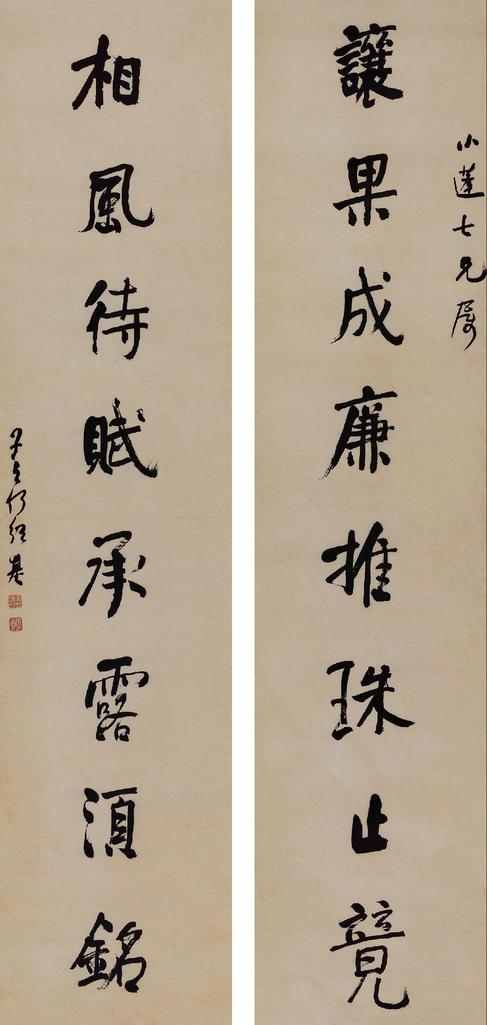 小蓮七兄屬
讓果成廉推珠止競
相風待賦承露湏銘
子貞何紹基